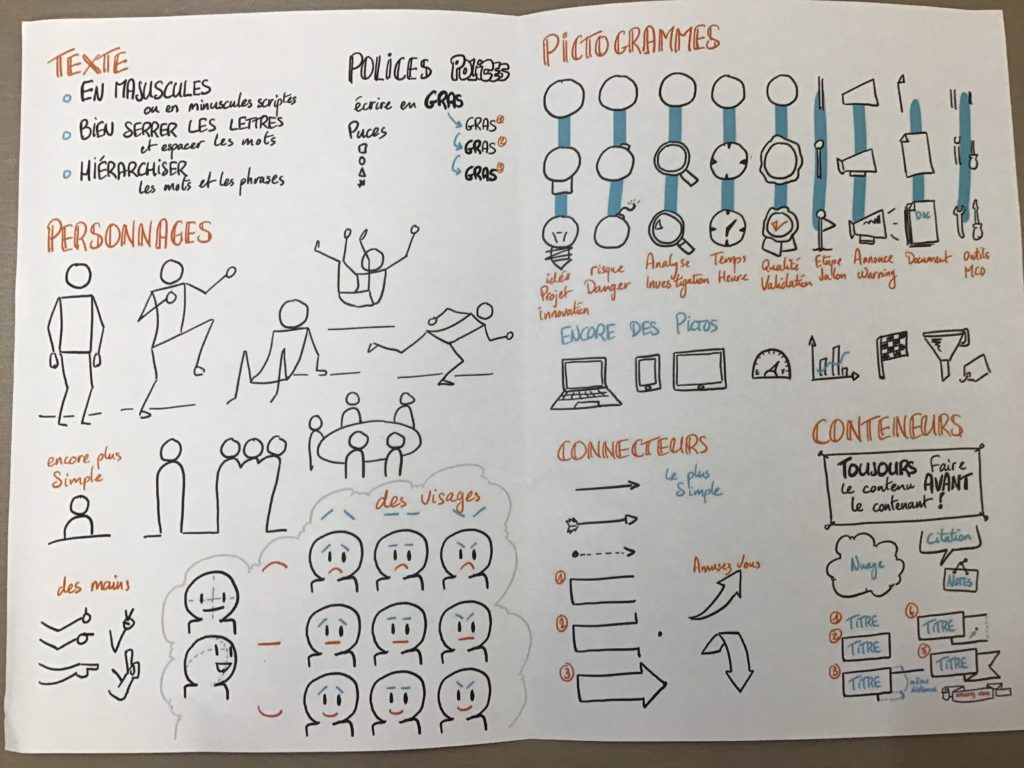 TEXTE
EN MAJUSCULES
ou en minuscules scriptes
BIEN SERRER LES LETTRES
et espacer les mots
HIÉRARCHISER
les mots et les phrases
POLICES POLICES
écrire en GRAS
GRAS 1
GRAS 2
GRAS 3
Puces
PERSONNAGES
encore plus
Simple
des mains
des visages
PICTOGRAMMES
idée
Projet
innovation
risque
Danger
Analyse
Investigation
Temps
Heure
Qualité
Validation
Etape
Jalon
Annonce
Warning
DOC
Document
Outils
MCO
ENCORE DES PICTOS
CONNECTEURS
le plus
Simple
Amusez vous
1
2
3
CONTENEURS
TOUJOURS Faire
le contenu AVANT
le contenant !
Nuage
Citation
NOTES
1 TITRE
2 TITRE
3 TITRE
même
distance
4 TITRE
5 TITRE